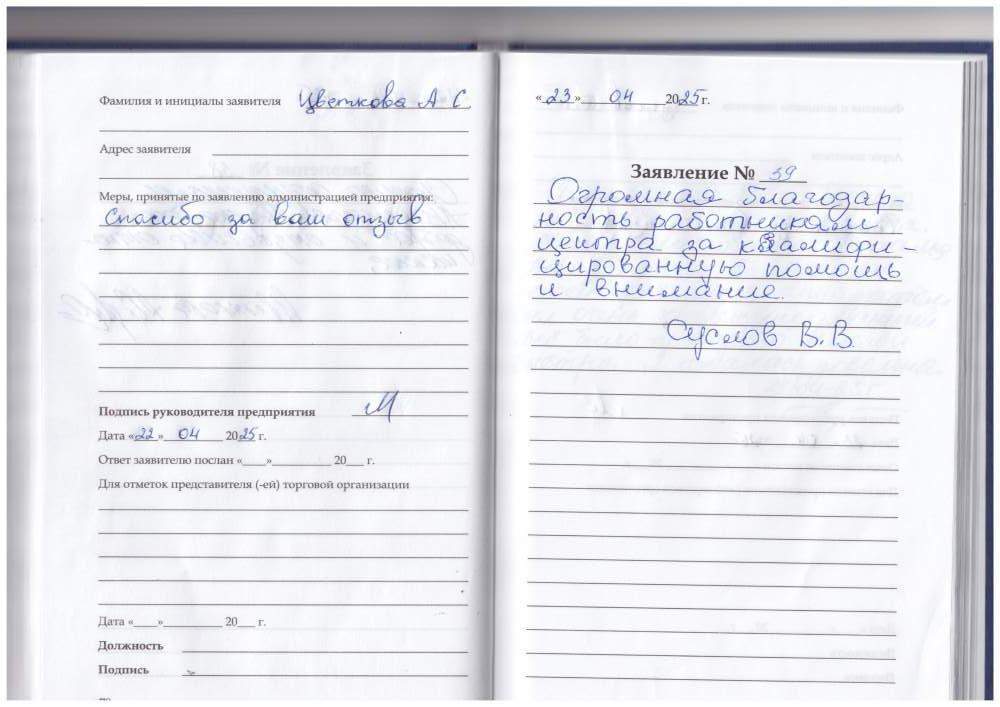 Фамилия и инициалы заявителя Цветкова А С
Адрес заявителя
Меры, принятые по заявлению администрацией предприятия:
Спасибо за ваш отзыв
Подпись руководителя предприятия
Дата «22» 04 2025 г.
Ответ заявителю послан «____»__________ 20___ г.
Для отметок представителя (-ей) торговой организации
Дата «____»__________ 20___ г.
Должность
Подпись
«23» 04 2025 г.
Заявление № 39
Огромная благодар-
ность работникам
центра за квалифи-
цированную помощь
и внимание.
Суслов В.В.